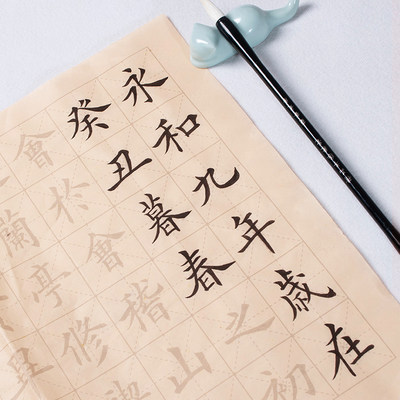 永和九年歲在
癸丑暮春之初
會於會稽山
蘭亭修禊